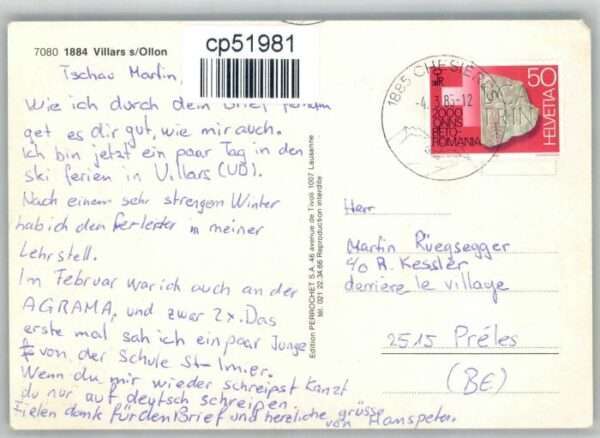 7080 1884 Villars s/Ollon
cp51981
Tschau Martin,
Wie ich durch dein Brief
get es dir gut, wie mir auch.
Ich bin jetzt ein paar Tag in den
ski ferien in Villars (VD).
Nach einem sehr strengen Winter
hab ich den in meiner
Lehrstell.
Im Februar war ich auch an der
AGRAMA, und zwar 2x. Das
erste mal sah ich ein paar Junge
von der Schule St-Imier.
Wenn du mir wieder schreipst kanzt
du nur auf deutsch schreiben.
Fielen dank für den Brief und herzliche grüsse
von Hanspeter.
Edition PERROCHET S.A. 46 avenue de Tivoli 1007 Lausanne
Tél. 021 22.34.66 Reproduction interdite
1885 CHESIÈRES
-4. 3. 85-12
50
HELVETIA
2000
ONNS
RETO-
ROMANIA
Herr
Martin Rüegsegger
c/o R. Kessler
derrière le village
2515 Préles
(BE)